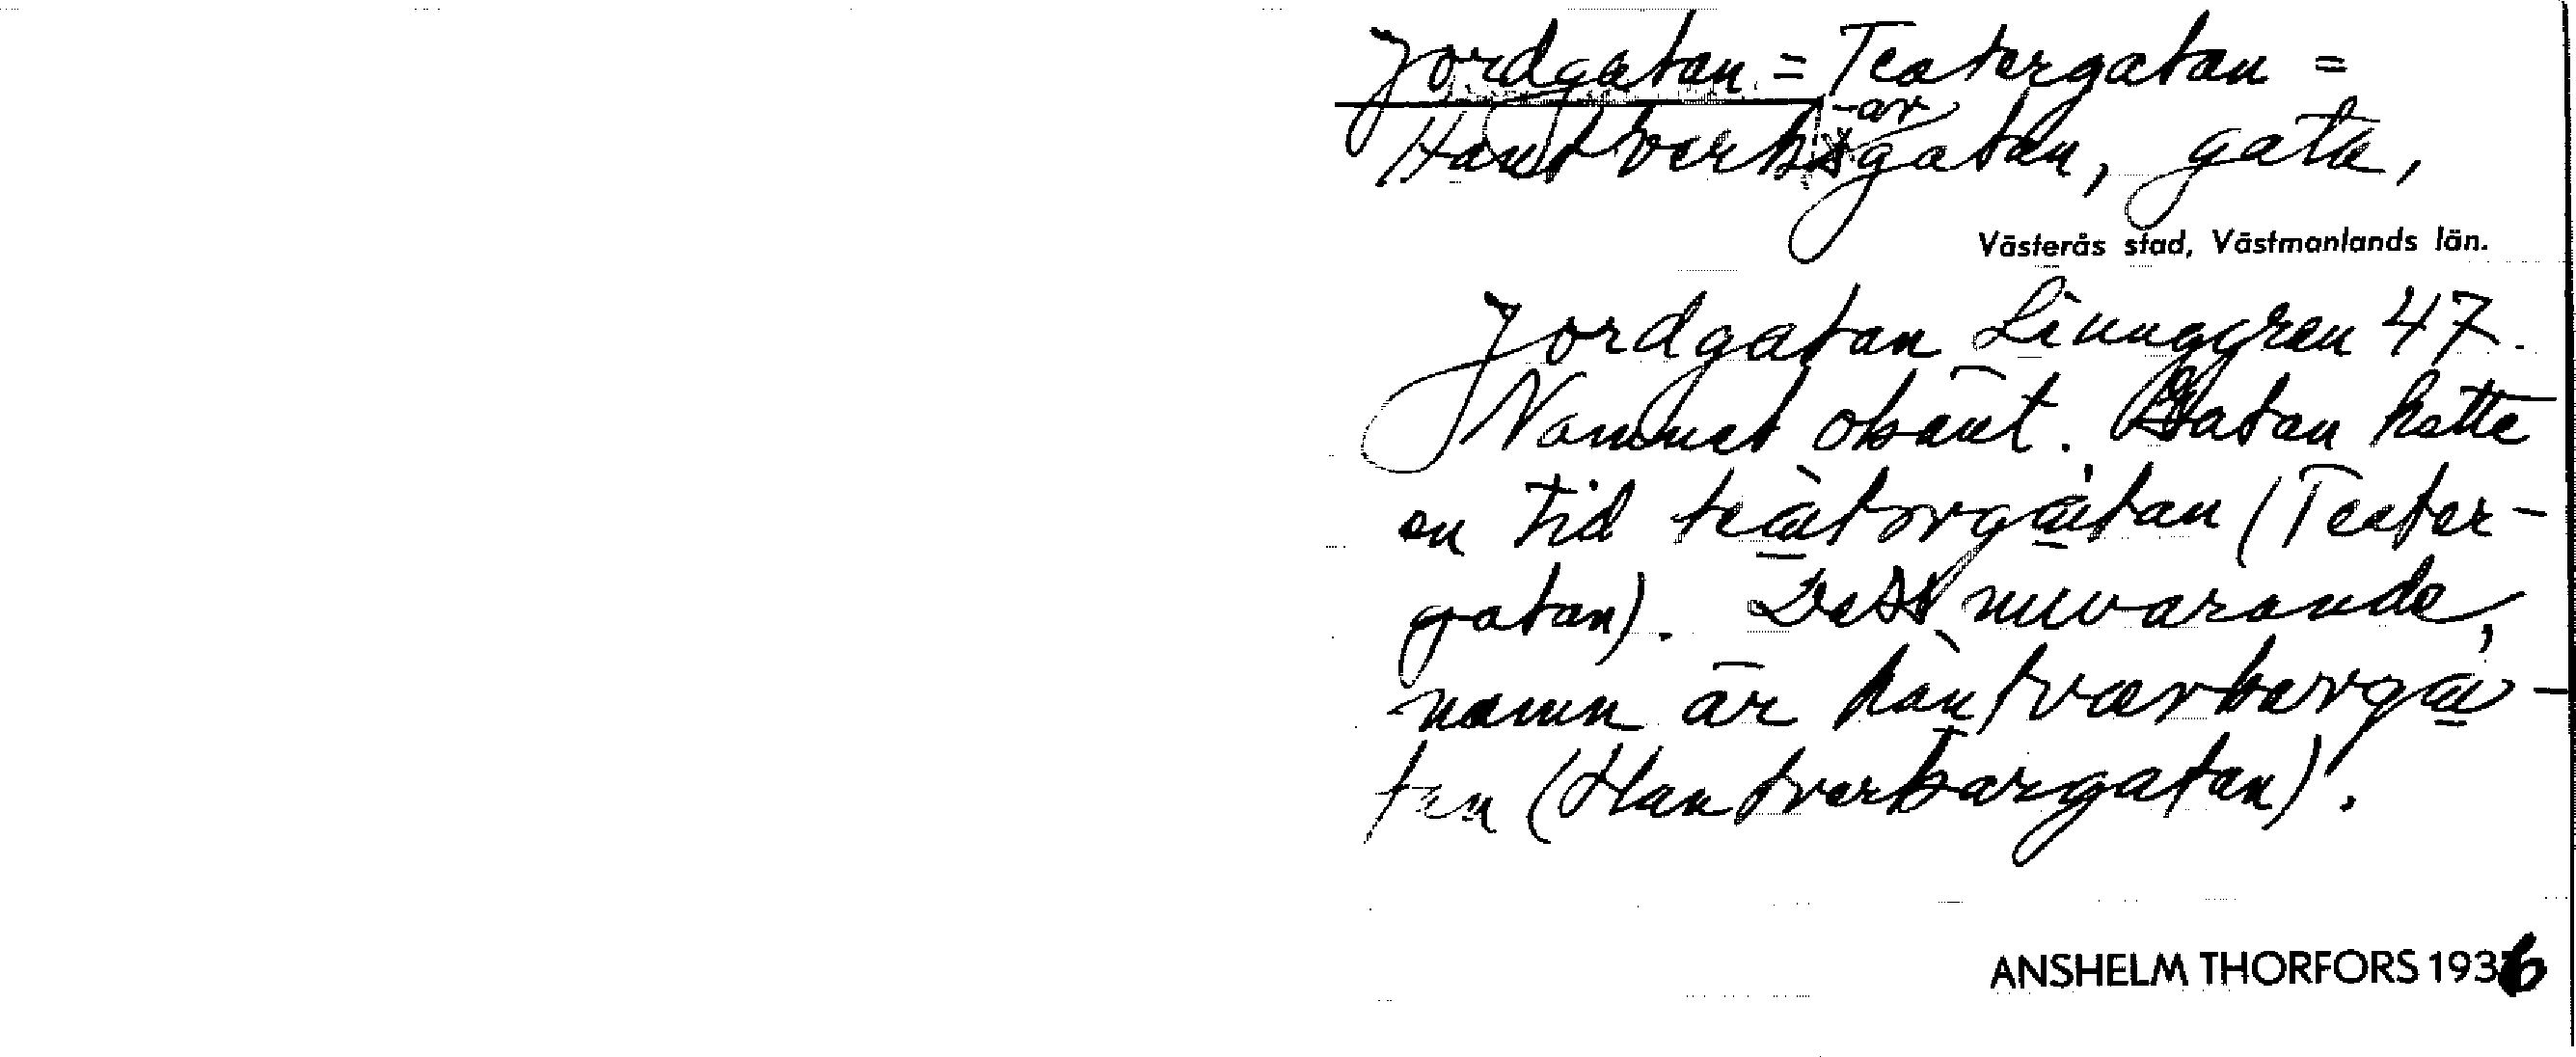 Jordgatan = Teatergatan =
-ar
Hantverksgatan, gata,
Västerås stad, Västmanlands län.
Jordgatan Linnggren 47.
Namnet okänt. Gatan hette
en tid teatorgatan (Teater-
gatan). Dess nuvarande
namn är hantvarkarga-
tan (Hantverkargatan).
ANSHELM THORFORS 1936